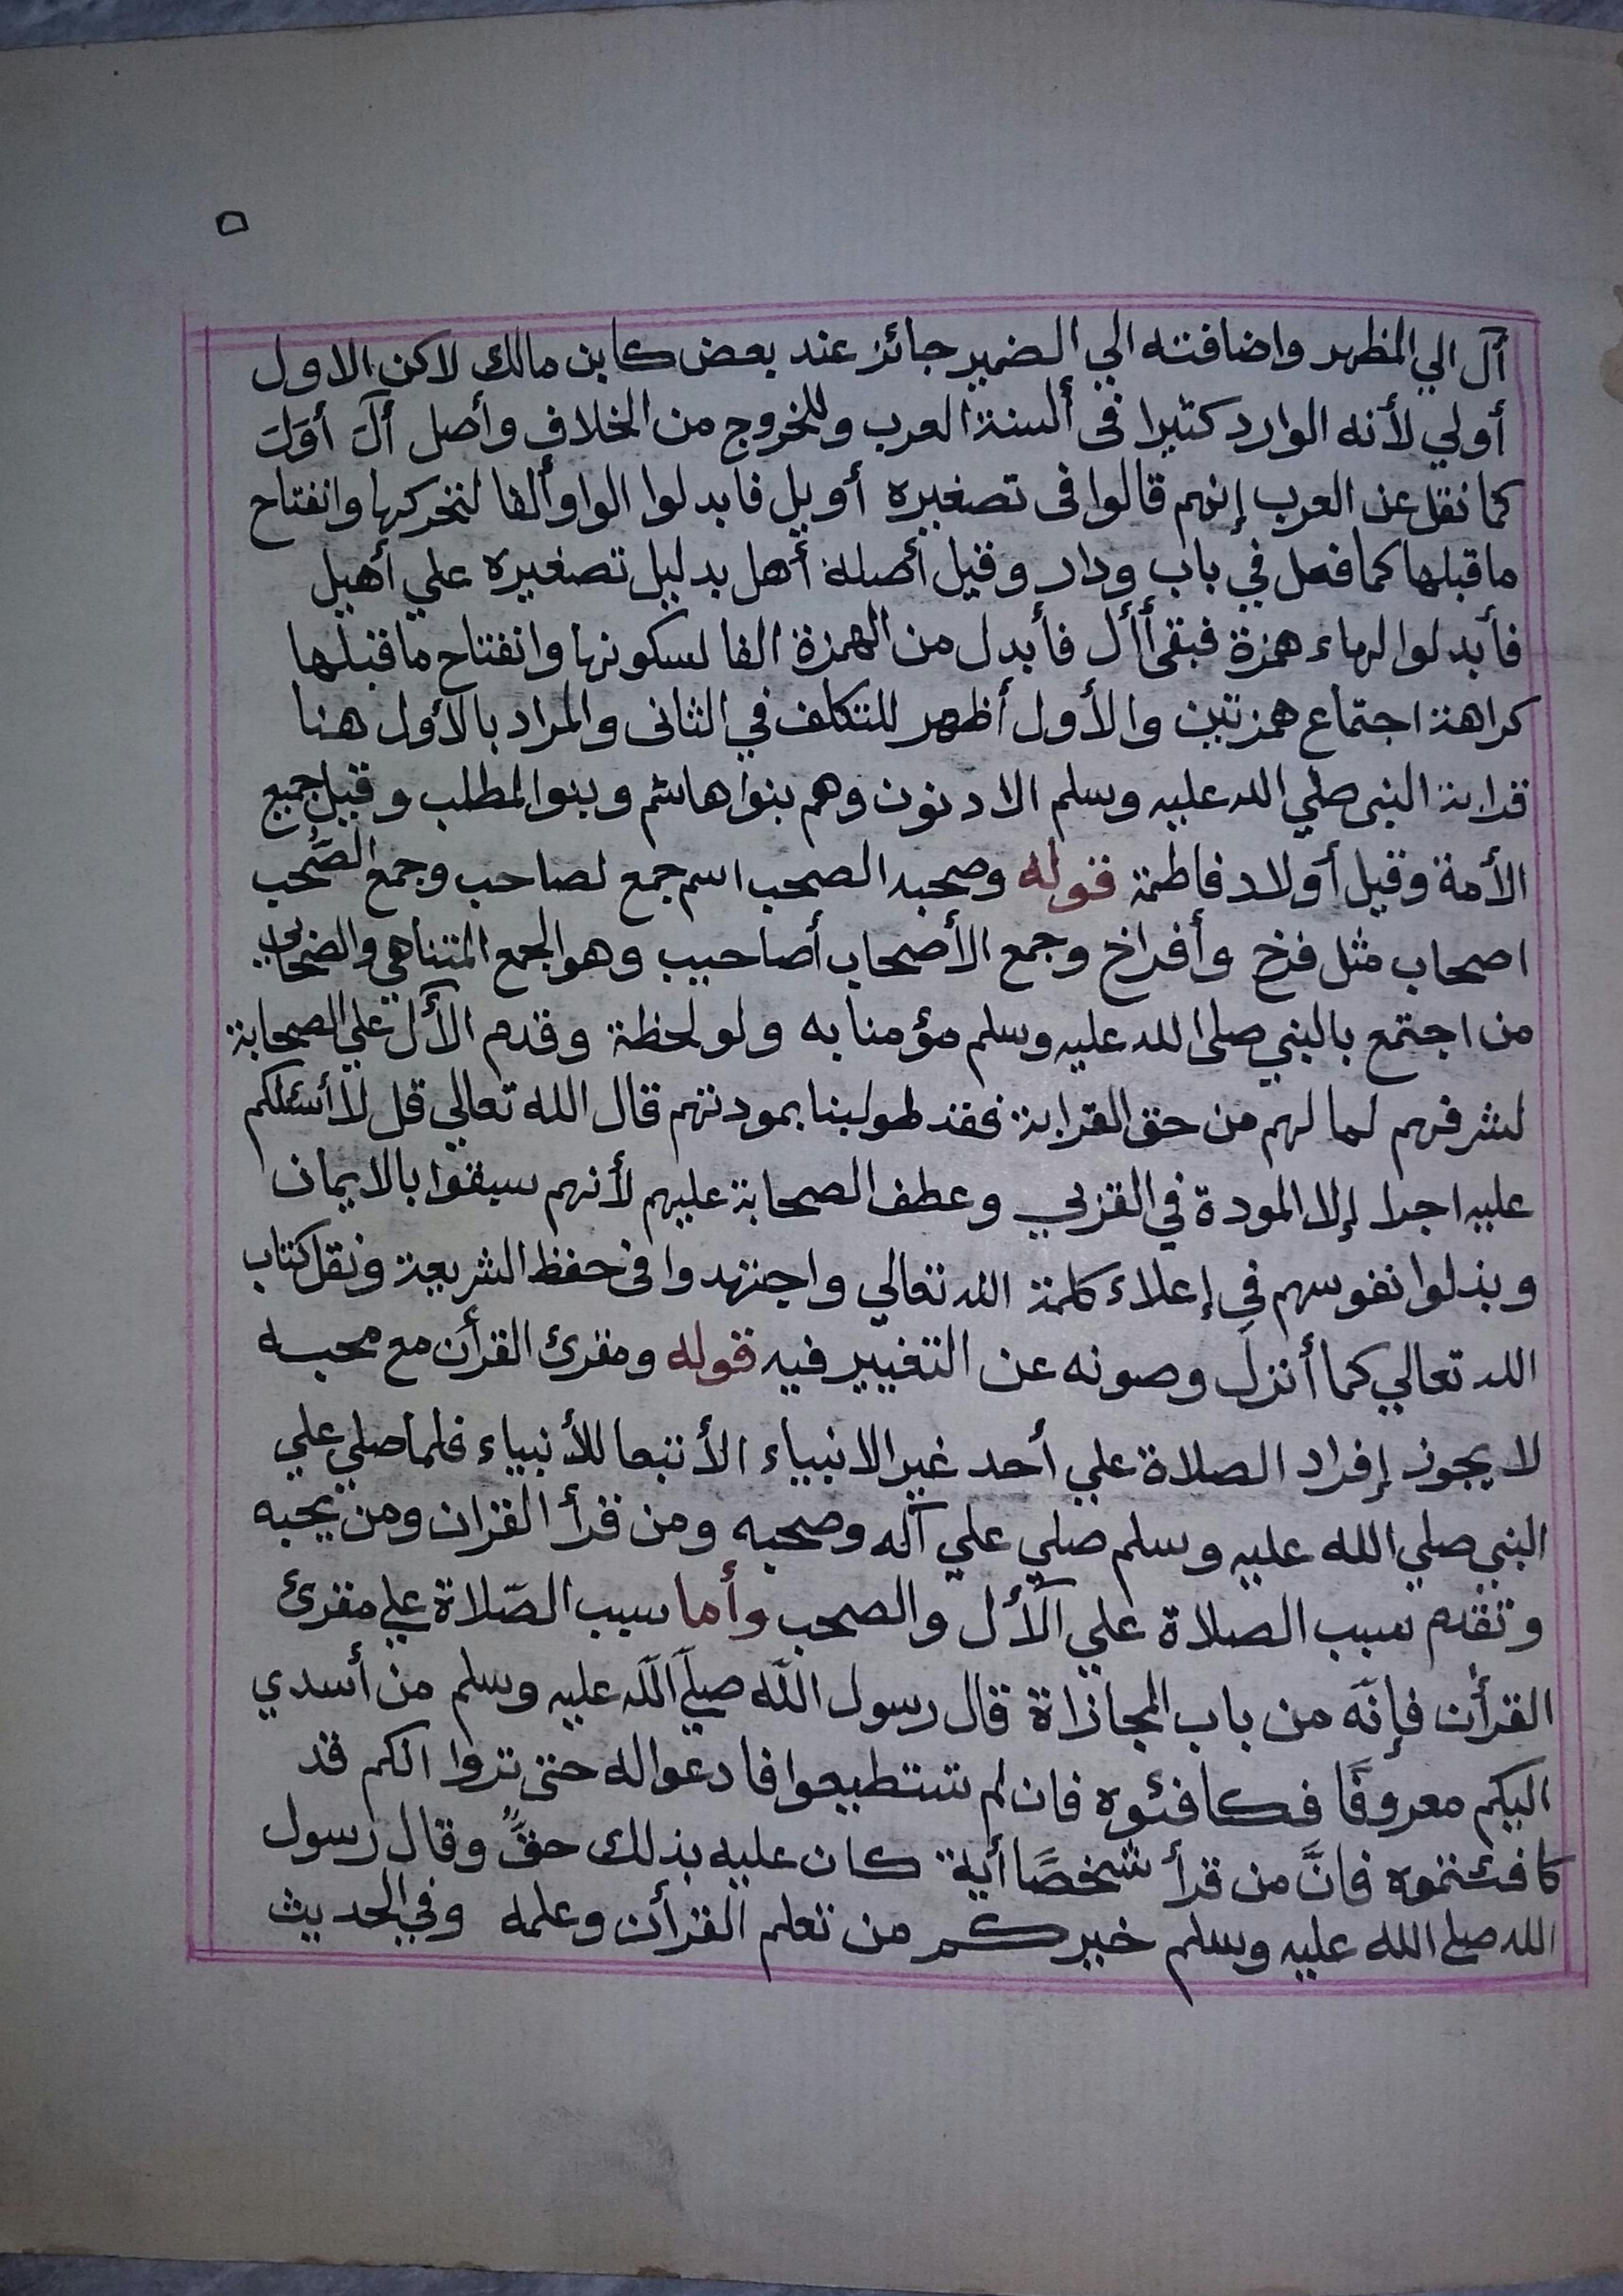 ٥
آل الي المظهر واضافته الي الضمير جائز عند بعض كابن مالك لاكن الاول
أولي لأنه الوارد كثيرا فى ألسنة العرب وللخروج من الخلاف وأصل ألَ أوَلَ
كما نقل عن العرب إنهم قالوا فى تصغيره أويل فابدلوا الواو ألفا لتحركها وانفتاح
ماقبلها كما فعل في باب ودار وقيل أصله أهل بدليل تصغيره علي أهيل
فأبدلوا الهاء همزة فبقى أأل فأبدل من الهمزة الفا لسكونها وانفتاح ماقبلها
كراهة اجتماع همزتين والأول أظهر للتكلف في الثانى والمراد بالأول هنا
قرابة النبى صلي الله عليه وسلم الادنون وهم بنوا هاشم وبنوا لمطلب وقيل جميع
الأمة وقيل أولاد فاطمة قوله وصحبه الصحب اسم جمع لصاحب وجمع الصَّحب
اصحاب مثل فرخ وأفراخ وجمع الأصحاب أصاحيب وهو الجمع المتناهي والصحابى
من اجتمع بالنبي صلى الله عليه وسلم مؤمنا به ولو لحظة وقدم الآل علي الصحابة
لشرفهم لما لهم من حق القرابة فقد طولبنا بمودتهم قال الله تعالي قل لا أسئلكم
عليه اجرا إلا المودة في القربي وعطف الصحابة عليهم لأنهم سبقوا بالايمان
وبذلوا نفوسهم في إعلاء كلمة الله تعالي واجتهدوا فى حفظ الشريعة ونقل كتاب
الله تعالي كما أنزل وصونه عن التغيير فيه قوله ومقرئ القرأن مع محبه
لا يجوز إفراد الصلاة علي أحد غير الانبياء الأ تبعا للأنبياء فلما صلي علي
النبي صلي الله عليه وسلم صلي علي آله وصحبه ومن قرأ القران ومن يحبه
وتقدم سبب الصلاة علي الآل والصحب وأما سبب الصّلاة علي مقرئ
القرأن فإنّه من باب المجازاة قال رسول اللّه صلّي اللّه عليه وسلم من أسدي
اليكم معروفًا فكافئوه فان لم تستطيعوا فادعوا له حتى تروا الكم قد
كافئتموه فانَّ من قرأ شخصًا أية كان عليه بذلك حقٌّ وقال رسول
الله صلي الله عليه وسلم خيركم من تعلم القرأن وعلمه وفي الحديث